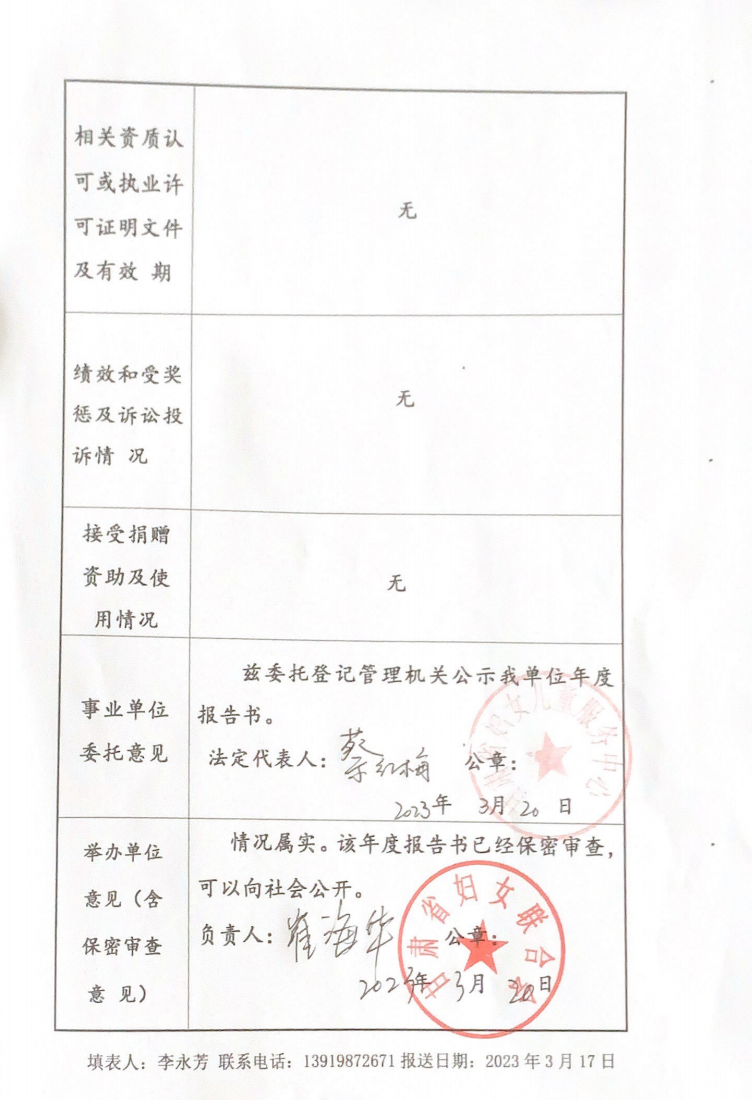 相关资质认
可或执业许
可证明文件
及有效 期
无
绩效和受奖
惩及诉讼投
诉情 况
无
接受捐赠
资助及使
用情况
无
事业单位
委托意见
兹委托登记管理机关公示我单位年度
报告书。
法定代表人：蔡红梅 公章：
2023年 3月 20 日
妇女儿童服务中心
举办单位
意见（含
保密审查
意 见）
情况属实。该年度报告书已经保密审查，
可以向社会公开。
负责人：崔海华 公章：
2023年 3月 20日
甘肃省妇女联合会
填表人：李永芳 联系电话：13919872671 报送日期：2023 年 3 月 17 日